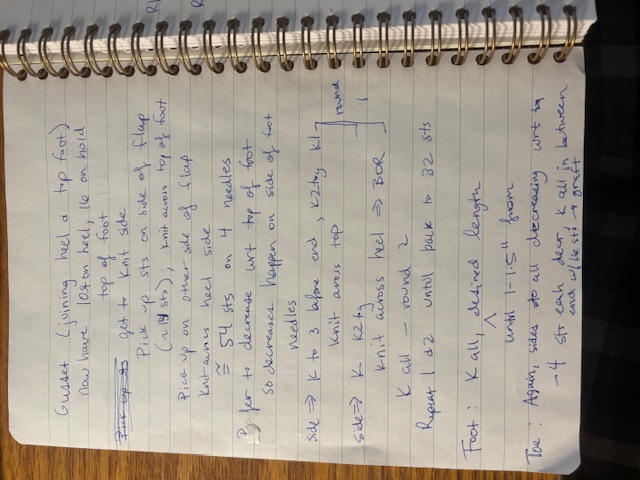 Gusset (joining heel & top foot)
now have 10 on heel, 16 on hold
top of foot
Pick up sts get to knit side
Pick up sts on side of flap
(~14 sts), knit across top of foot
Pick up on other side of flap
Knit across heel side
≅ 54 sts on 4 needles
fer to decrease wrt top of foot
so decreases happen on side of foot
needles
side ⇒ K to 3 before end, K2tog K1
Knit aross top
side ⇒ K K2tog
Knit across heel ⇒ BOR
round
1
K all – round 2
Repeat 1 & 2 until back to 32 sts
Foot: K all, desired length
^
until 1-1.5" from
Toe: Again, sides do all decreasing wrt
-4 sts each decr, K all in between
end w/ 16 sts → graft
R
R